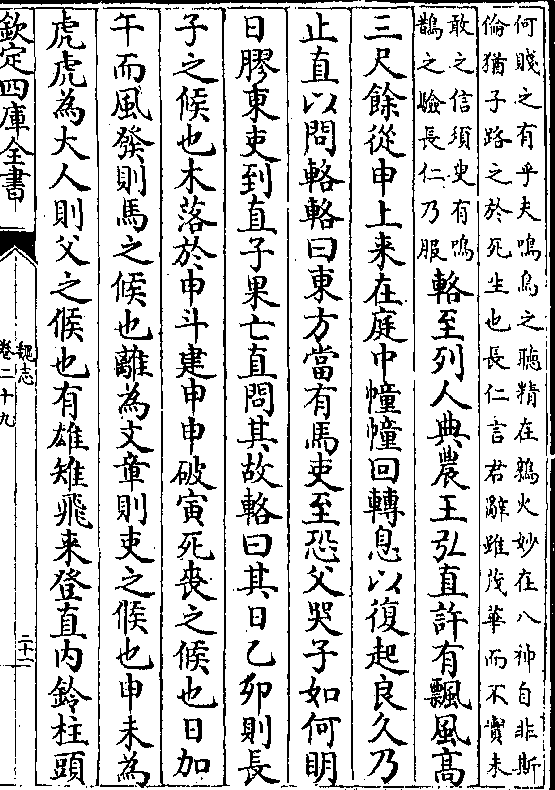 何賤之有乎夫鳴鳥之聽精在鶉火妙在八神自非斯
倫猶子路之於死生也長仁言君辭雖茂華而不實未
敢之信須臾有鳴
鵲之驗長仁乃服
輅至列人典農王弘直許有飄風高
三尺餘從申上来在庭中幢幢回轉息以復起良久乃
止直以問輅輅曰東方當有馬吏至恐父哭子如何明
日膠東吏到直子果亡直問其故輅曰其日乙卯則長
子之候也木落於申斗建申申破寅死喪之候也日加
午而風發則馬之候也離為文章則吏之候也申未為
虎虎為大人則父之候也有雄雉飛来登直内鈴柱頭
欽定四庫全書
魏志
卷二十九
二十二